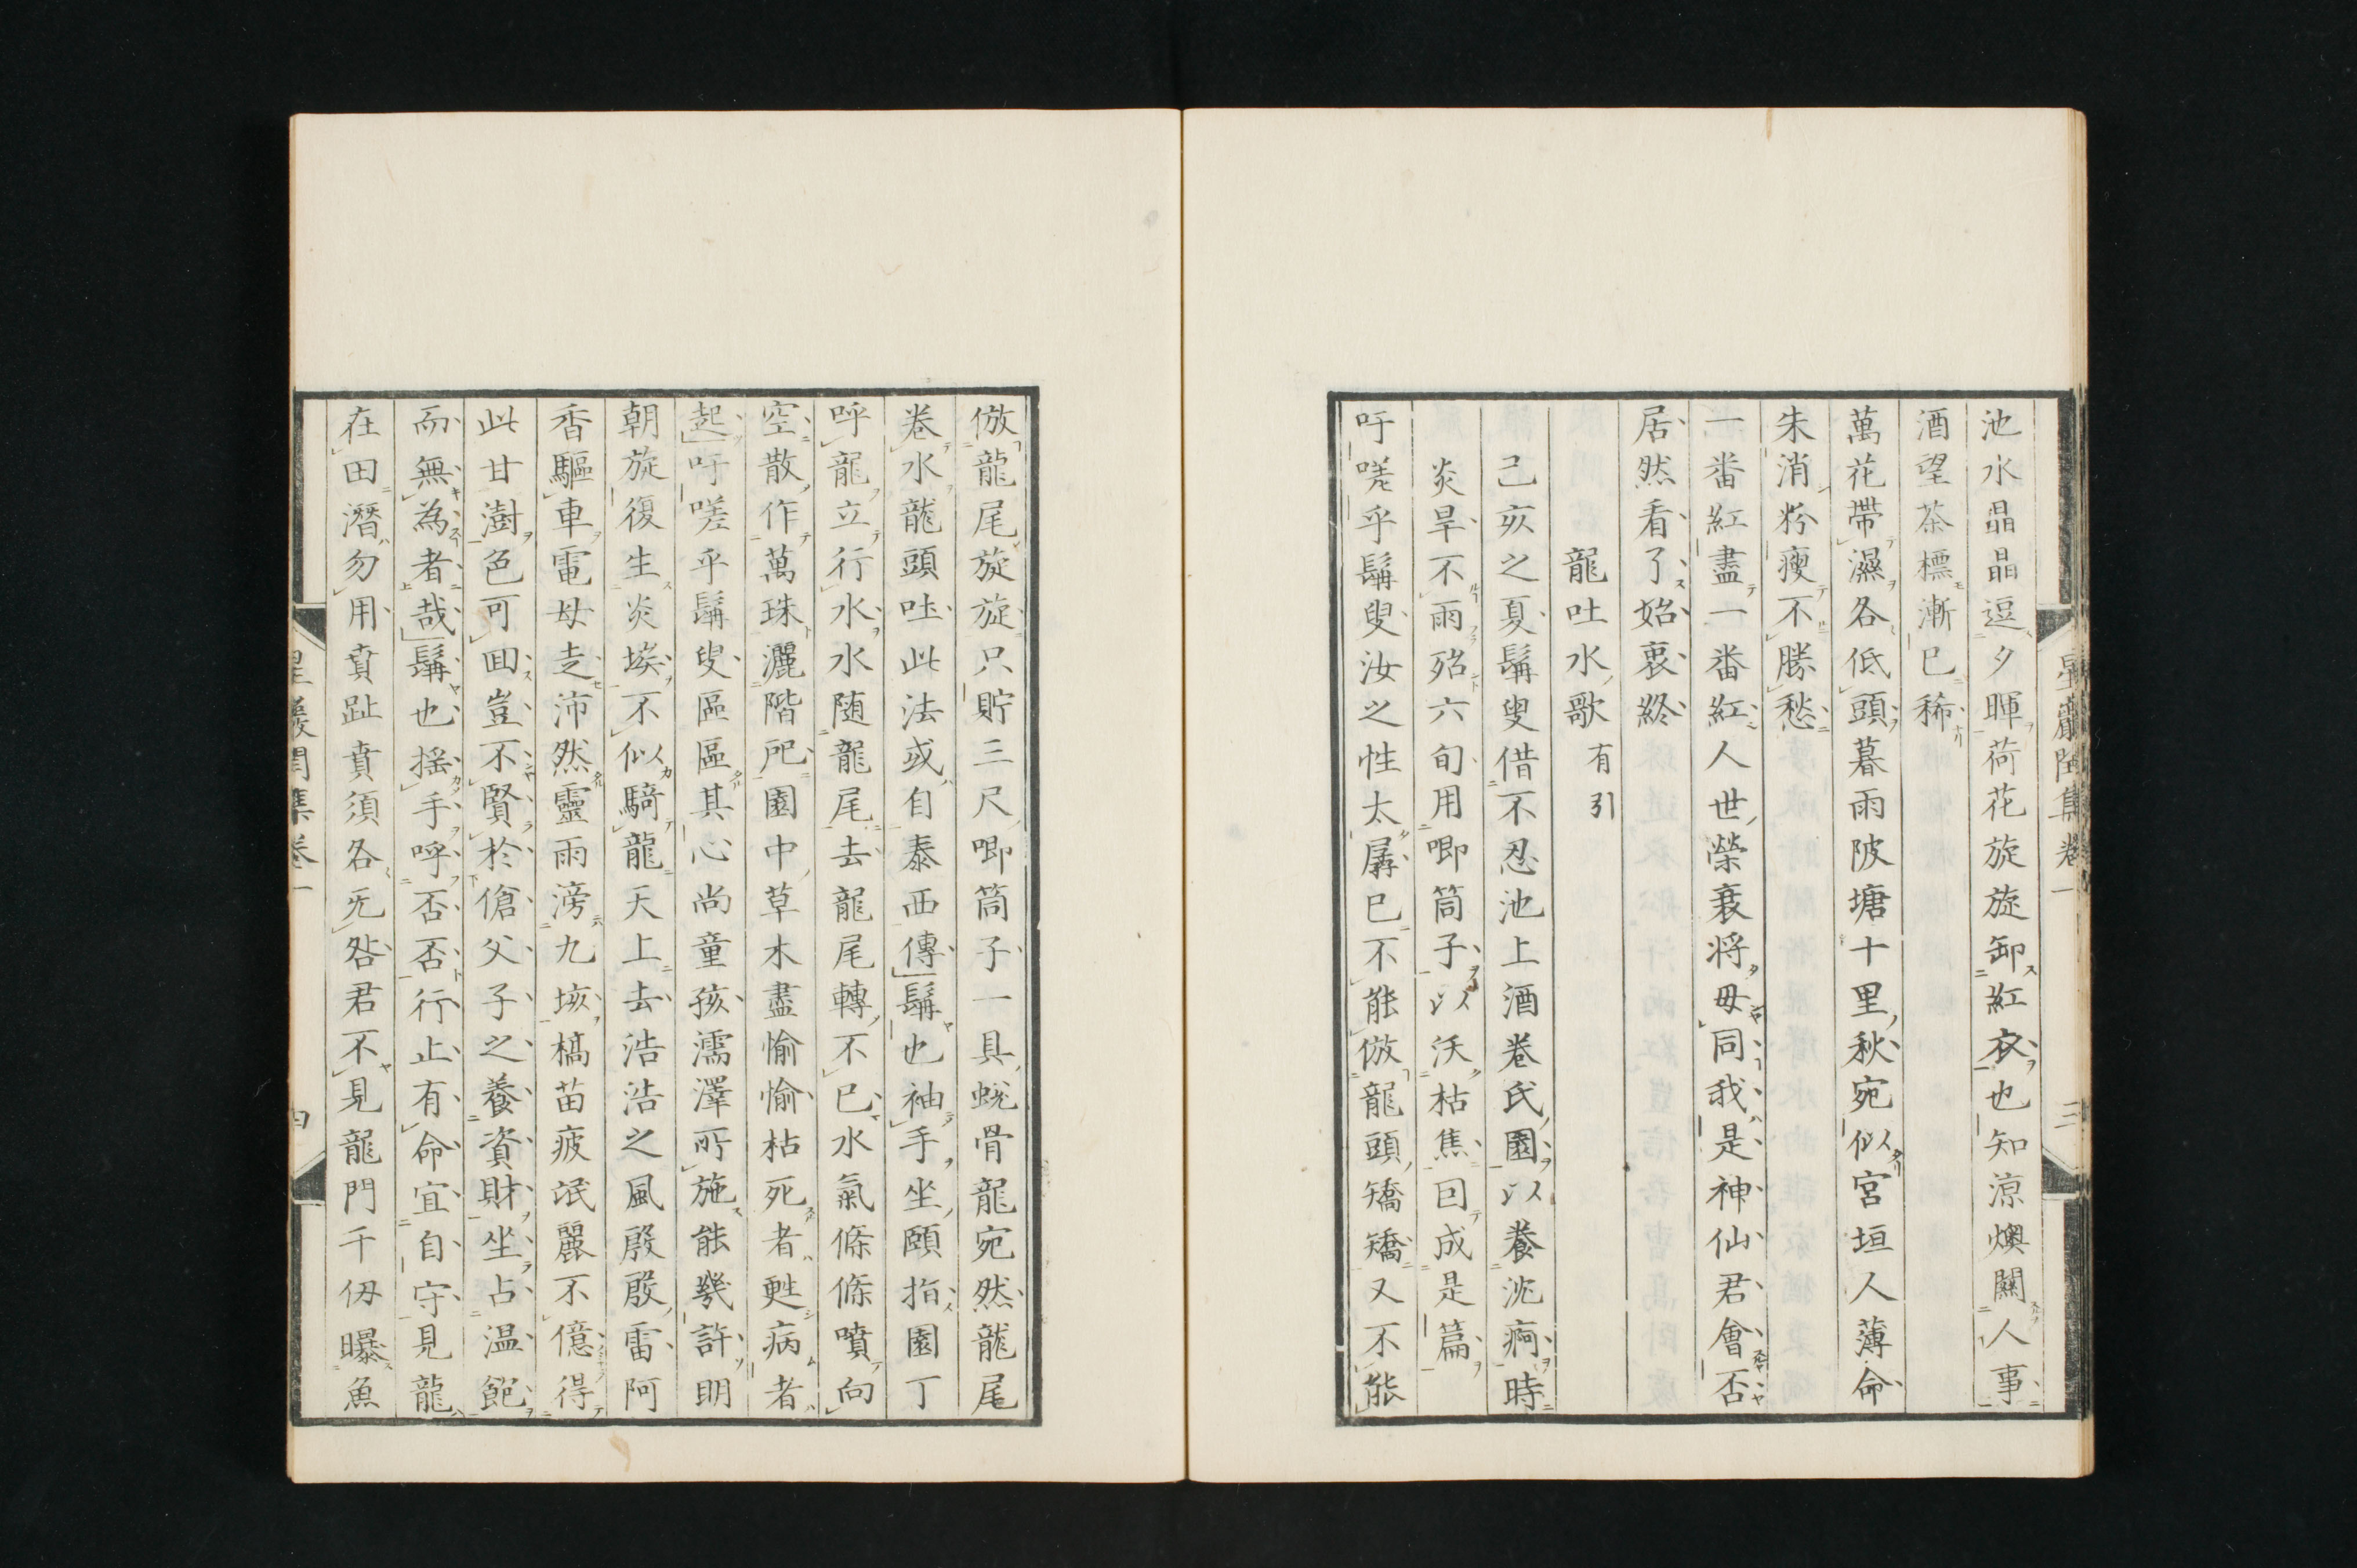 池水晶晶逗夕暉荷花旋旋卸紅衣也知涼燠關人事
酒望茶標漸已稀
萬花帶濕各低頭暮雨陂塘十里秋宛似宮垣人薄命
朱消粉瘦不勝愁
一番紅盡一番紅人世榮衰将毋同我是神仙君會否
居然看了始衷終
龍吐水歌有引
己亥之夏髯叟借不忍池上酒巻氏園以養沈痾時
炎旱不雨殆六旬用喞筒子以沃枯焦因成是篇
吁嗟乎髯叟汝之性太孱已不能倣龍頭矯矯又不能
倣龍尾旋旋只貯三尺喞筒子一具蛻骨龍宛然龍尾
巻水龍頭吐此法或自泰西傳髯也袖手坐頤指園丁
呼龍立行水水随龍尾去龍尾轉不已水氣條條噴向
空散作萬珠灑階戺園中草木盡愉愉枯死者甦病者
起吁嗟乎髯叟區區其心尚童孩濡澤所施能幾許明
朝旋復生炎埃不似騎龍天上去浩浩之風殷殷雷阿
香驅車電母走沛然靈雨滂九垓槁苗疲氓麗不億得
此甘澍色可回豈不賢於傖父子之養資財坐占温飽
而無為者哉髯也揺手呼否否行止有命宜自守見龍
在田潛勿用賁趾賁須各旡咎君不見龍門千仭曝魚
星巖集巻一
三
四